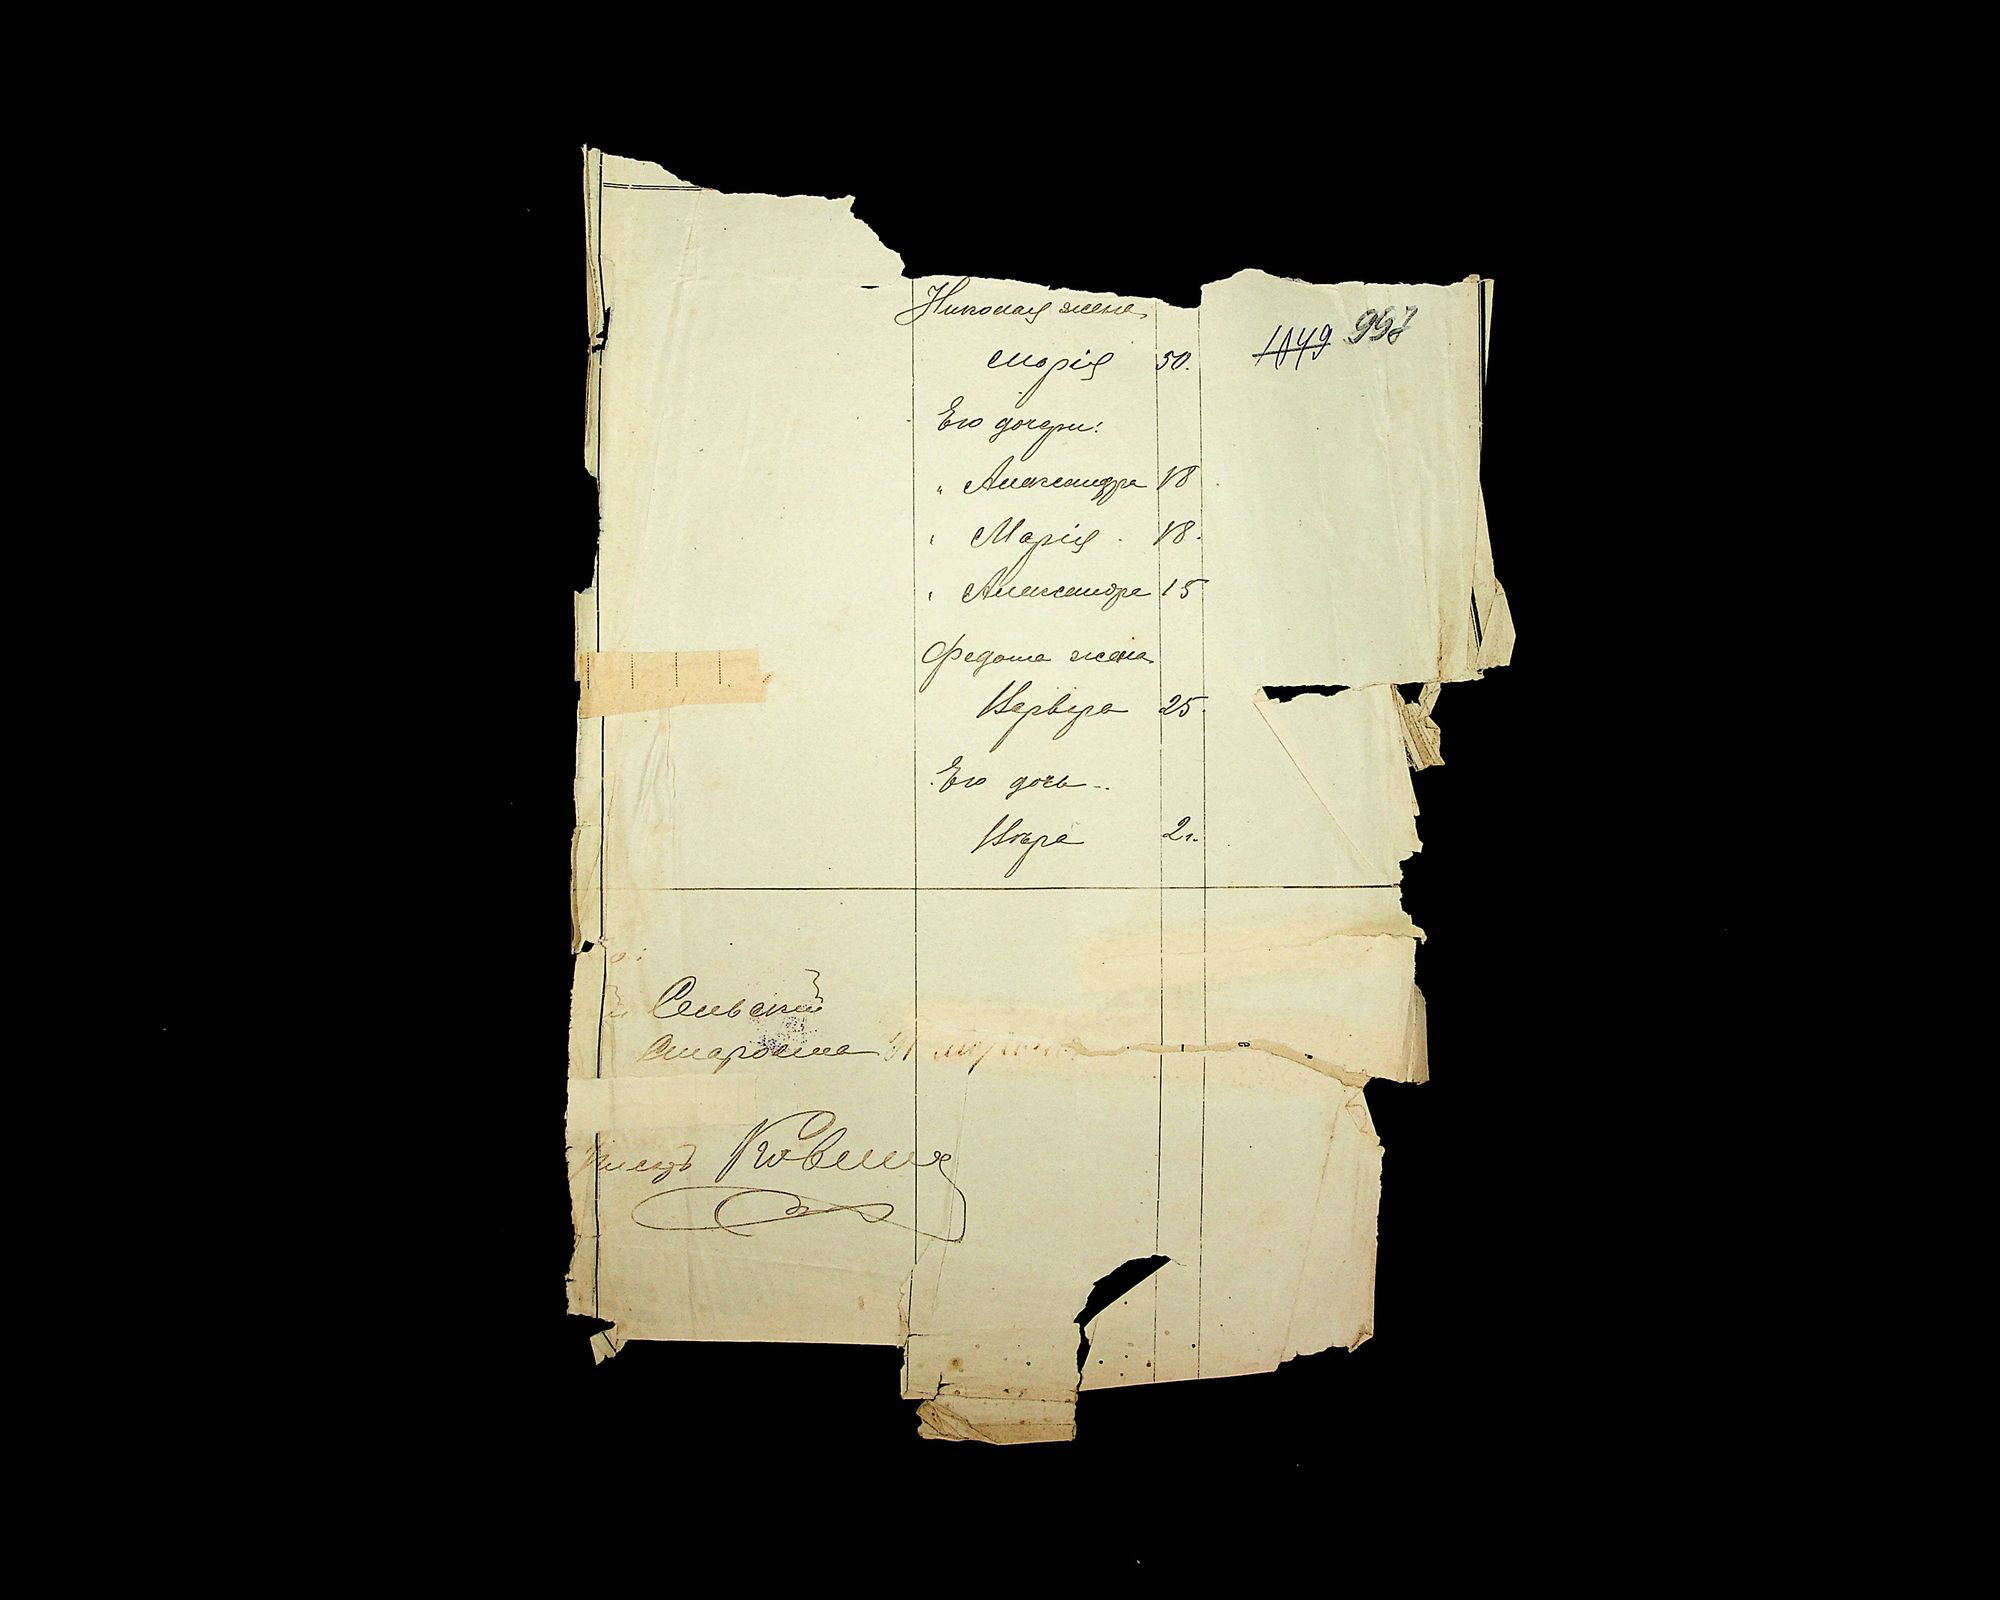 Николая жена
Марія 50.
1049 997
Его дочери:
" Александра 18
" Марія 18.
" Александра 15
Федота жена
Варвара 25.
Его дочь
Вѣра 2 г.
Сельскій
Староста